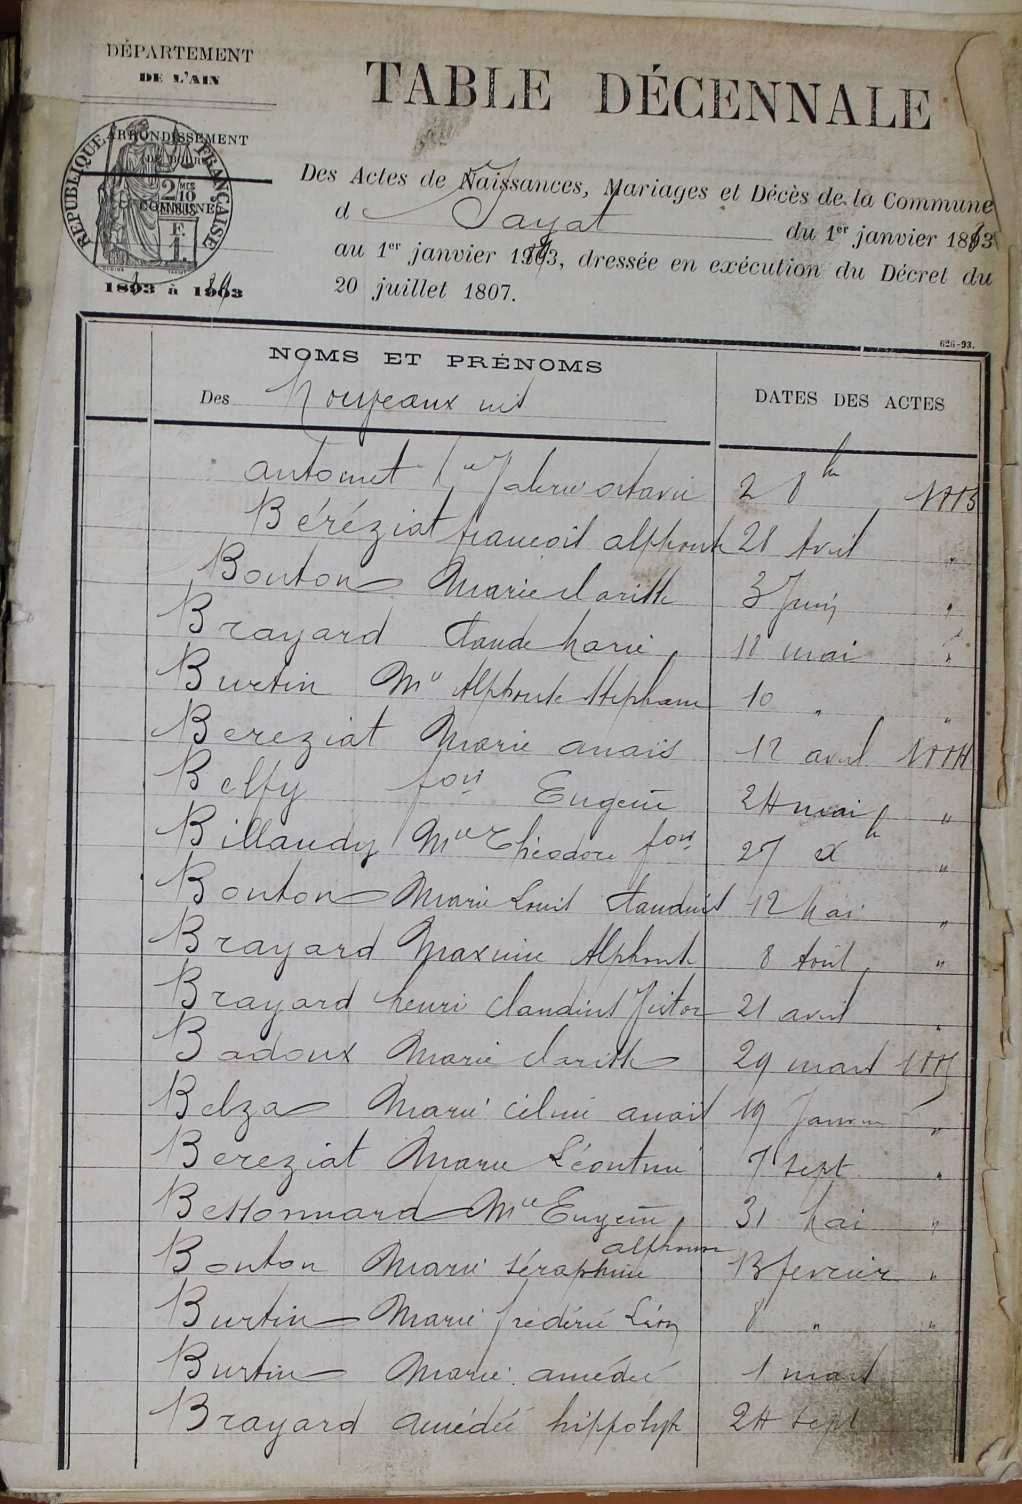 DÉPARTEMENT
DE L'AIN
TABLE DÉCENNALE
ARRONDISSEMENT
RÉPUBLIQUE FRANÇAISE
COMMUNE
Des Actes de Naissances, Mariages et Décès de la Commune
d Jayat du 1er janvier 1883
au 1er janvier 1893, dressée en exécution du Décret du
20 juillet 1807.
626-93.
NOMS ET PRÉNOMS
Des Nouveaux nés
DATES DES ACTES
Antoinet Valerie octavie 2 8bre 1883
Béréziat françois alphonse 28 Avril "
Bouton Marie Clarisse 3 Juin "
Brayard Claude Marie 18 mai "
Burtin Mie Alphonse Stephane 10 " "
Bereziat Marie anaïs 12 avril 1884
Belfy fois Eugene 24 mai "
Billaudy Mie Théodore fois 27 Xb "
Bouton Marie Louis Claudius 12 Mai "
Brayard Maxime Alphonse 8 Août "
Brayard henri Claudius Victor 21 avril "
Badoux Marie clarisse 29 mars 1885
Belza Marie célmie anais 19 Janvier "
Bereziat Marie Léontine 7 sept "
Bessonnard Mie Eugene 31 Mai "
alphonse
Bouton Marie séraphine 13 fevrier "
Burtin Marie frédéric Léon 8 " "
Burtin Marie amédée 1 mars
Brayard Amédée hippolyte 24 sept